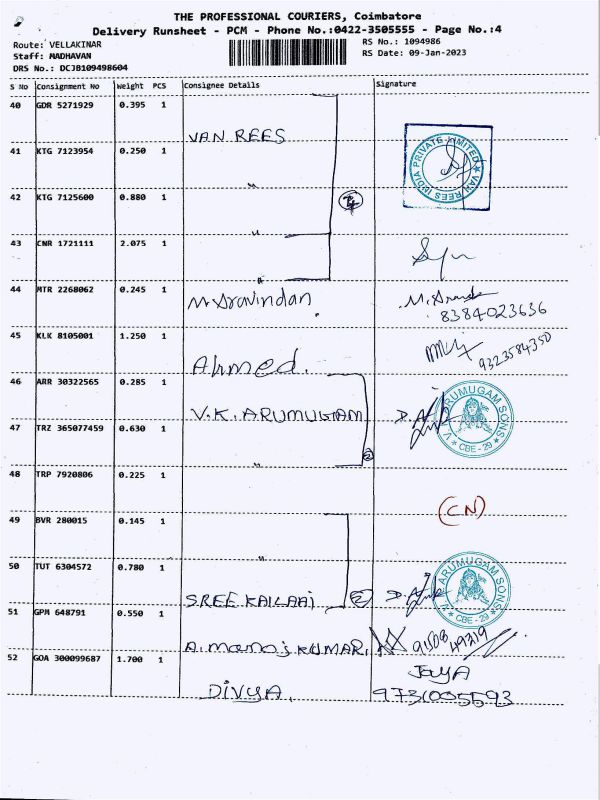 THE PROFESSIONAL COURIERS, Coimbatore
Delivery Runsheet - PCM - Phone No.:0422-3505555 - Page No.:4
Route: VELLAKINAR
Staff: MADHAVAN
DRS No.: DCJB109498604
RS No.: 1094986
RS Date: 09-Jan-2023
S No Consignment No Weight PCS Consignee Details Signature
40 GDR 5271929 0.395 1
VAN REES
VAN REES INDIA PRIVATE LIMITED
41 KTG 7123954 0.250 1
"
42 KTG 7125600 0.880 1
"
43 CNR 1721111 2.075 1
"
44 MTR 2268062 0.245 1
M. Aravindan.
8384023636
45 KLK 8105001 1.250 1
Ahmed.
9323584350
46 ARR 30322565 0.285 1
V.K. ARUMUGAM
V. ARUMUGAM SONS
CBE - 29
47 TRZ 365077459 0.630 1
" 2
48 TRP 7920806 0.225 1
(CN)
49 BVR 280015 0.145 1
"
50 TUT 6304572 0.780 1
SREE KAILAAI 2
ARUMUGAM SONS
CBE - 29
51 GPM 648791 0.550 1
A. manoj KUMAR.
52 GOA 300099687 1.700 1
DIVYA.
JayA
9731005593